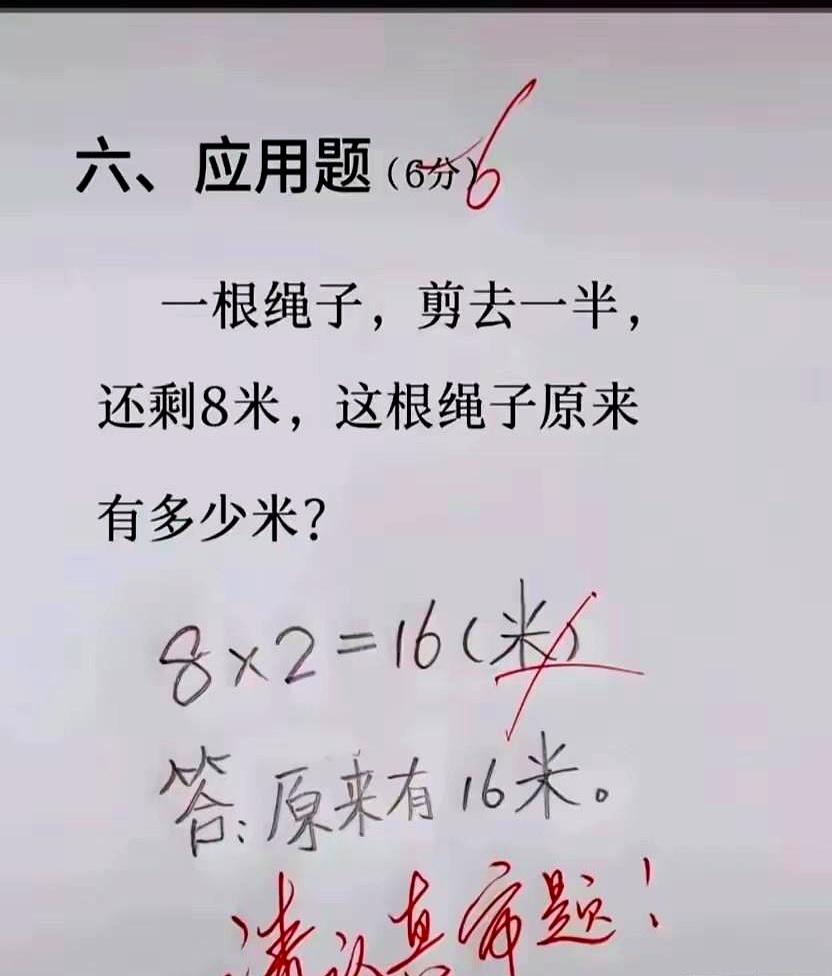 六、应用题（6分）-6
一根绳子，剪去一半，
还剩8米，这根绳子原来
有多少米？
8×2=16(米)
答:原来有16米。
请认真审题！